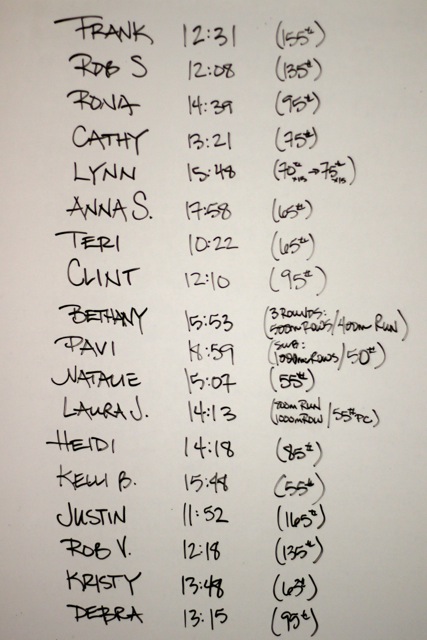 FRANK 12:31 (155#)
ROB S 12:08 (135#)
RONA 14:39 (95#)
CATHY 13:21 (75#)
LYNN 15:48 (70# x15 → 75# x15)
ANNA S. 17:58 (65#)
TERI 10:22 (65#)
CLINT 12:10 (95#)
BETHANY 15:53 (3 ROUNDS: 500m ROWS/400m RUN)
PAVI 18:59 (SUB: 1000m ROWS/50#)
NATALIE 15:07 (55#)
LAURA J. 14:13 RUN 1000m ROW/55# PC)
HEIDI 14:18 (85#)
KELLI B. 15:48 (55#)
JUSTIN 11:52 (165#)
ROB V. 12:18 (135#)
KRISTY 13:48 (63#)
DEBRA 13:15 (95#)